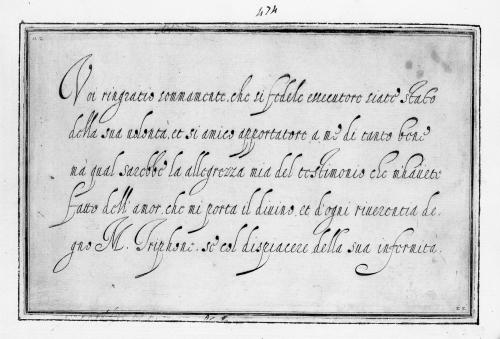 474
Voi ringratio sommamente, che si fedele essecutore siate stato
della sua volontà, et si amico apportatore a me di tanto bene
ma qual sarebbe la allegrezza mia del testimonio che m'havete
fatto dell' amor, che mi porta il divino, et d'ogni riverentia de,
gno M. Triphone, se col dispiacere della sua infermita.